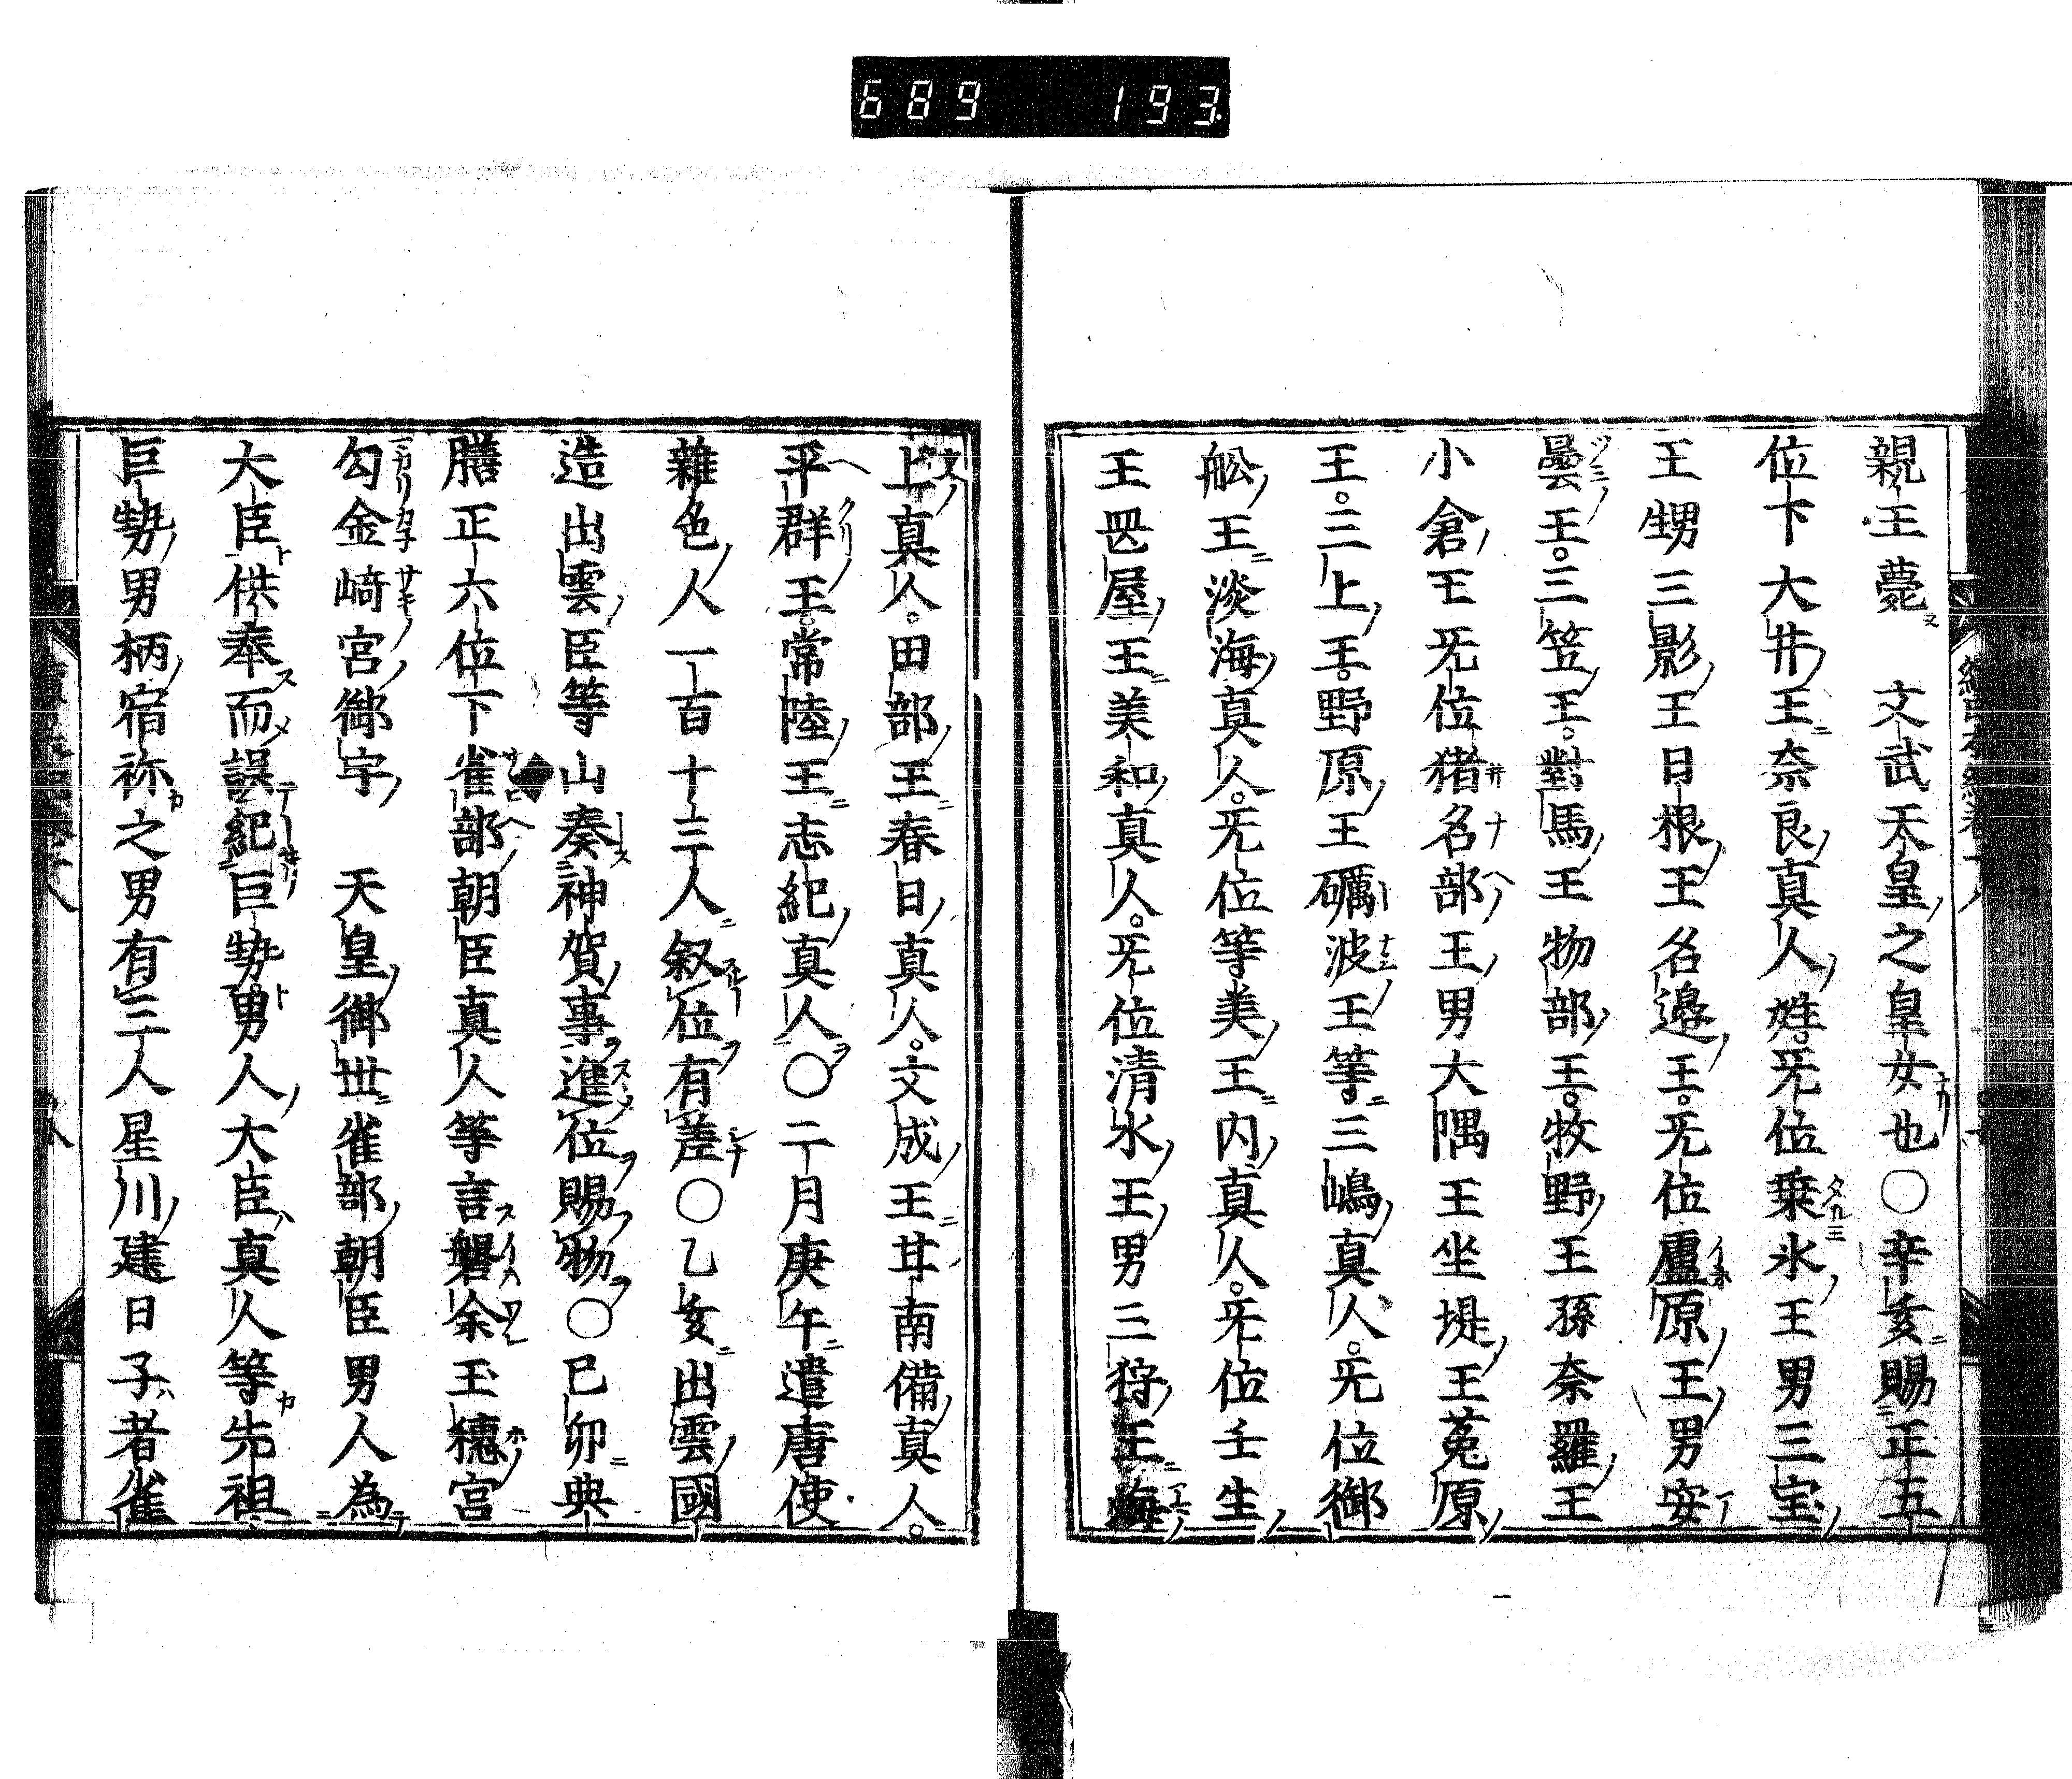 689 193
親王薨 文武天皇之皇女也○辛亥賜正五
位下大井王奈良真人姓。无位乗氷王男三宝
王甥三影王日根王名邉王。无位廬原王男安
曇王。三笠王。對馬王物部王。牧野王孫奈羅王
小倉王无位猪名部王男大隅王坐堤王菟原
王。三上王。野原王礪波王等三嶋真人。无位御
舩王淡海真人。无位等美王内真人。无位壬生
王岊屋王美和真人。无位清水王男三狩王海
上真人。田部王春日真人。文成王甘南備真人。
平群王。常陸王志紀真人○二月庚午遣唐使
雜色人一百十三人叙位有差○乙亥出雲國
造出雲臣等山奏神賀事進位賜物○巳卯典
膳正六位下雀部朝臣真人等言磐余玉穂宮
勾金﨑宮御宇 天皇御世雀部朝臣男人為
大臣供奉而誤紀巨勢男人大臣真人等先祖
巨勢男柄宿祢之男有三人星川建日子者雀